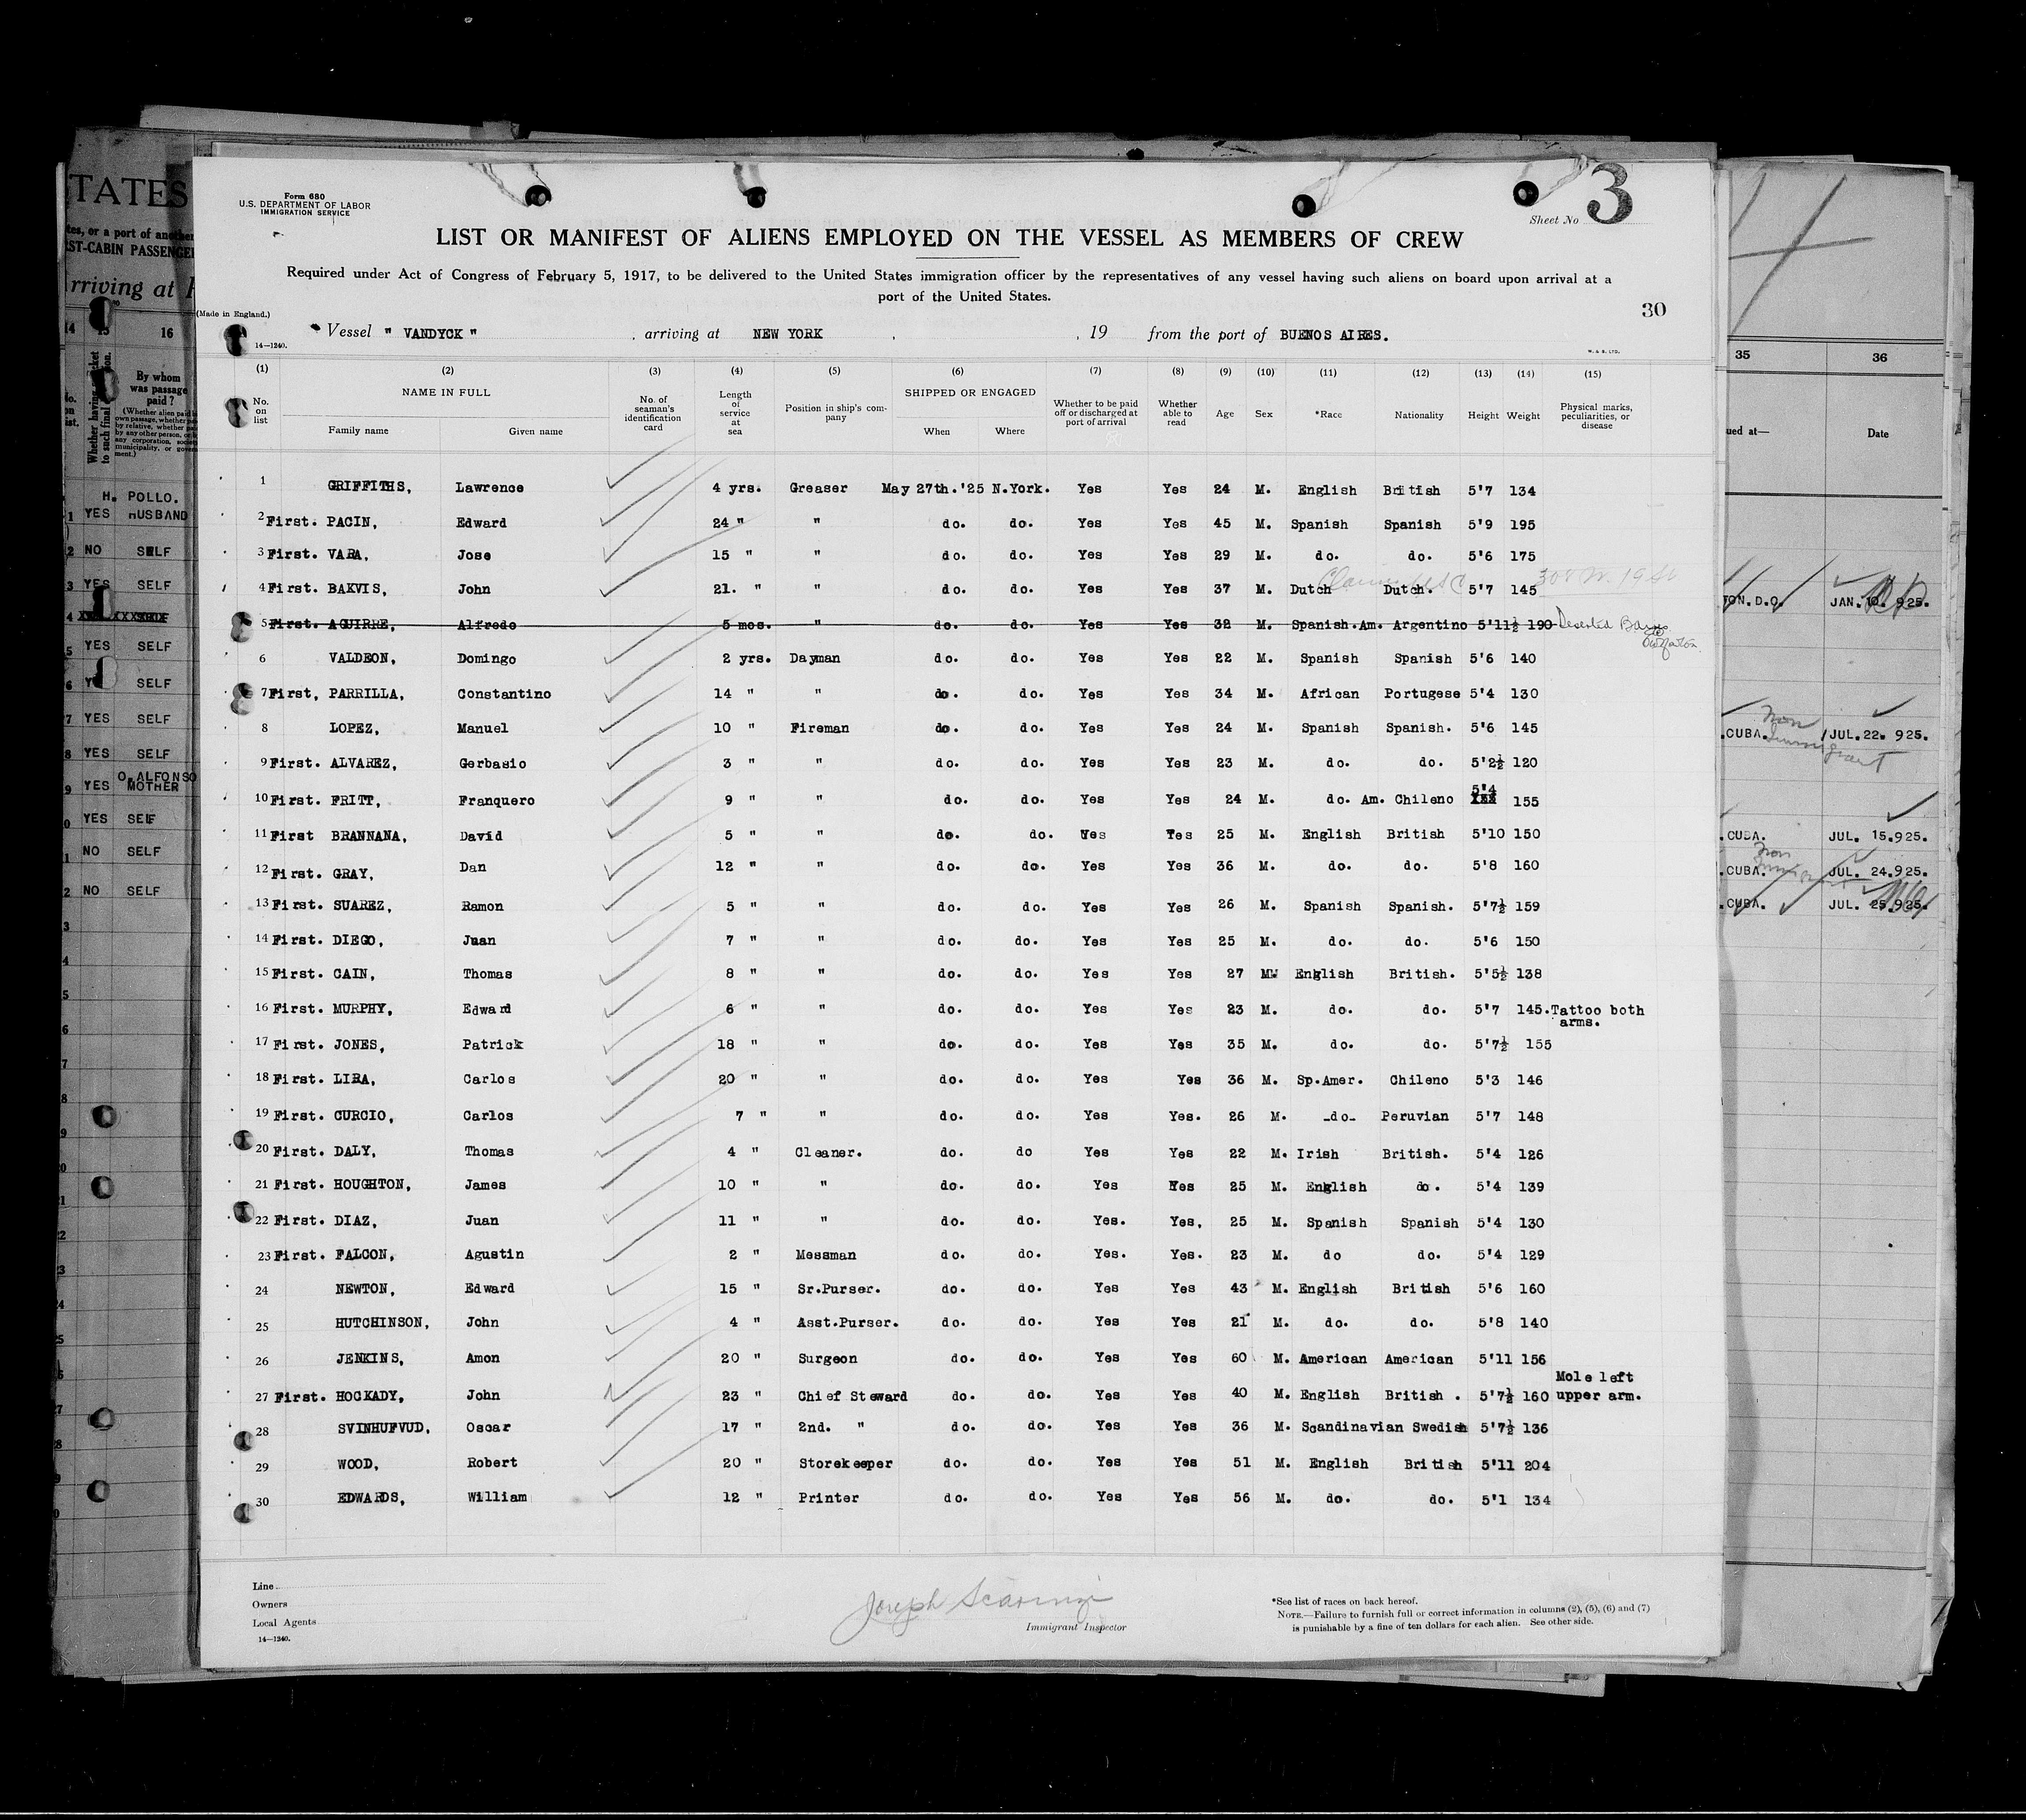 Form 680
U.S. DEPARTMENT OF LABOR
IMMIGRATION SERVICE
Sheet No 3
LIST OR MANIFEST OF ALIENS EMPLOYED ON THE VESSEL AS MEMBERS OF CREW
Required under Act of Congress of February 5, 1917, to be delivered to the United States immigration officer by the representatives of any vessel having such aliens on board upon arrival at a
port of the United States.
30
(Made in England.)
Vessel " VANDYCK " , arriving at NEW YORK , , 19 from the port of BUENOS AIRES.
14—1240.
W. & S. LTD.
(1) (2) (3) (4) (5) (6) (7) (8) (9) (10) (11) (12) (13) (14) (15)
No. on list NAME IN FULL Family name Given name No. of seaman's identification card Length of service at sea Position in ship's company SHIPPED OR ENGAGED When Where Whether to be paid off or discharged at port of arrival Whether able to read Age Sex *Race Nationality Height Weight Physical marks, peculiarities, or disease
1 GRIFFITHS, Lawrence 4 yrs. Greaser May 27th.'25 N.York. Yes Yes 24 M. English British 5'7 134
2 First. PACIN, Edward 24 " " do. do. Yes Yes 45 M. Spanish Spanish 5'9 195
3 First. VARA, Jose 15 " " do. do. Yes Yes 29 M. do. do. 5'6 175
4 First. BAKVIS, John 21. " " do. do. Yes Yes 37 M. Dutch Dutch. 5'7 145
5 First. AGUIRRE, Alfredo 5 mos. " do. do. Yes Yes 32 M. Spanish.Am. Argentino 5'11½ 190 Deserted
6 VALDEON, Domingo 2 yrs. Dayman do. do. Yes Yes 22 M. Spanish Spanish 5'6 140
7 First, PARRILLA, Constantino 14 " " do. do. Yes Yes 34 M. African Portugese 5'4 130
8 LOPEZ, Manuel 10 " Fireman do. do. Yes Yes 24 M. Spanish Spanish. 5'6 145
9 First. ALVAREZ, Gerbasio 3 " " do. do. Yes Yes 23 M. do. do. 5'2½ 120
10 First. FRITT, Franquero 9 " " do. do. Yes Yes 24 M. do. Am. Chileno 5'4 155
11 First BRANNANA, David 5 " " do. do. Yes Yes 25 M. English British 5'10 150
12 First. GRAY, Dan 12 " " do. do. Yes Yes 36 M. do. do. 5'8 160
13 First. SUAREZ, Ramon 5 " " do. do. Yes Yes 26 M. Spanish Spanish. 5'7½ 159
14 First. DIEGO, Juan 7 " " do. do. Yes Yes 25 M. do. do. 5'6 150
15 First. CAIN, Thomas 8 " " do. do. Yes Yes 27 M. English British. 5'5½ 138
16 First. MURPHY, Edward 6 " " do. do. Yes Yes 23 M. do. do. 5'7 145. Tattoo both
arms.
17 First. JONES, Patrick 18 " " do. do. Yes Yes 35 M. do. do. 5'7½ 155
18 First. LIRA, Carlos 20 " " do. do. Yes Yes 36 M. Sp.Amer. Chileno 5'3 146
19 First. CURCIO, Carlos 7 " " do. do. Yes Yes. 26 M. -do- Peruvian 5'7 148
20 First. DALY, Thomas 4 " Cleaner. do. do Yes Yes 22 M. Irish British. 5'4 126
21 First. HOUGHTON, James 10 " " do. do. Yes Yes 25 M. English do. 5'4 139
22 First. DIAZ, Juan 11 " " do. do. Yes. Yes, 25 M. Spanish Spanish 5'4 130
23 First. FALCON, Agustin 2 " Messman do. do. Yes. Yes. 23 M. do do. 5'4 129
24 NEWTON, Edward 15 " Sr.Purser. do. do. Yes Yes 43 M. English British 5'6 160
25 HUTCHINSON, John 4 " Asst.Purser. do. do. Yes Yes 21 M. do. do. 5'8 140
26 JENKINS, Amon 20 " Surgeon do. do. Yes Yes 60 M. American American 5'11 156
Mole left
27 First. HOCKADY, John 23 " Chief Steward do. do. Yes Yes 40 M. English British . 5'7½ 160 upper arm.
28 SVINHUFVUD, Oscar 17 " 2nd. " do. do. Yes Yes 36 M. Scandinavian Swedish 5'7½ 136
29 WOOD, Robert 20 " Storekeeper do. do. Yes Yes 51 M. English British 5'11 204
30 EDWARDS, William 12 " Printer do. do. Yes Yes 56 M. do. do. 5'1 134
Line
Owners
Local Agents
14—1240.
Joseph Scaringi
Immigrant Inspector
*See list of races on back hereof.
NOTE.—Failure to furnish full or correct information in columns (2), (5), (6) and (7)
is punishable by a fine of ten dollars for each alien. See other side.
TATES
ST-CABIN PASSENGE
rriving at
16
By whom
was passage
paid?
H. POLLO.
1 YES HUSBAND
2 NO SELF
3 YES SELF
YES SELF
SELF
7 YES SELF
8 YES SELF
O. ALFONSO
9 YES MOTHER
YES SELF
NO SELF
2 NO SELF
35 36
ued at— Date
TON.D.C. JAN. 10. 925.
.CUBA. JUL. 22. 925.
Non Immigrant
.CUBA. JUL. 15.925.
.CUBA. JUL. 24.925.
.CUBA. JUL. 25.925.